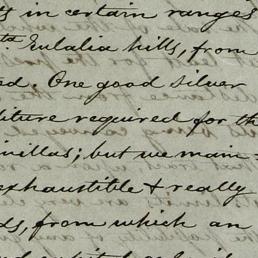 in certain ranges
ta. Eulalia hills, from
One good silver
diture required for th
inillas; but we main-
exhaustible & really
ds, from which an